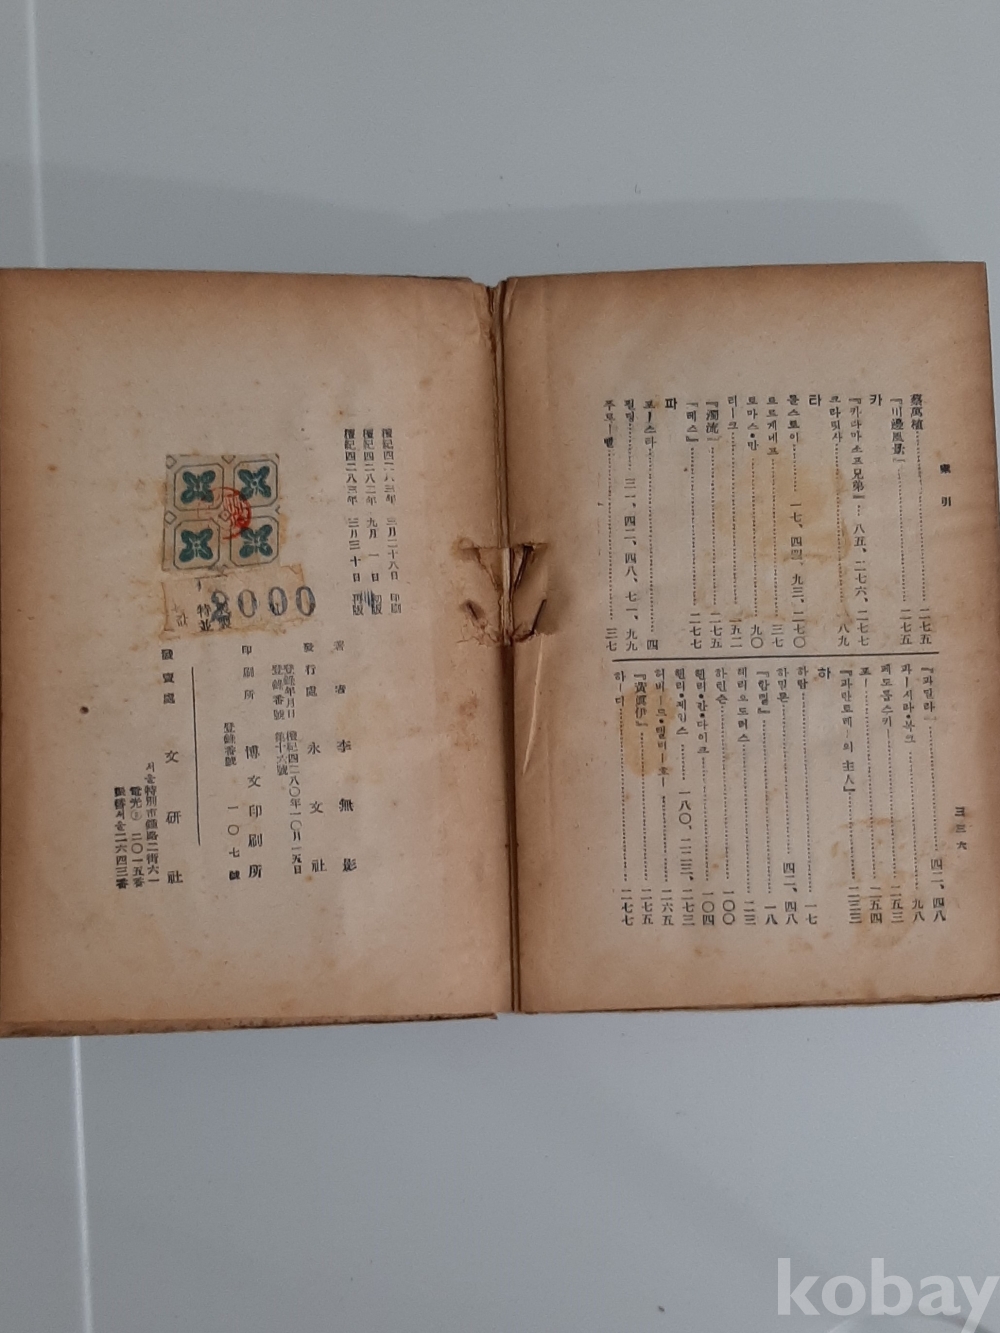 索引
三三六
蔡萬植……二七五
『川邊風景』……二七五
카
『카라마소프兄弟』…八五、二七六、二七七
크라릿사……八九
타
톨스토이……一七、四四、九三、二七〇
트르게네프……三七
토마스·만……九〇
티―크……一五二
『濁流』……二七五
『테스』……二七七
파
포―스타……四
필딩……三一、四二、四八、七一、九九
푸로―벨……三七
『파밀라』……四二、四八
파―시라·복크……九八
페도톨스키―……二五三
포―……二五四
『파란토레―의 主人』……二三三
하
하람……一七
하밀톤……四二、四八
『함렡』……一八
헤리오드러스……二三
하린슨……一〇〇
헨리·한·다이크……一〇四
헨리·제임스……一八〇、二二三、二七三
허버―트·텔비―호―……二六五
『黃眞伊』……二七五
하―디……二七七
檀紀四二八三年 三月二十八日 印刷
檀紀四二八二年 九月 一 日 初版
檀紀四二八三年 三月三十日 再版
著者 李無影
發行處 永文社
登錄年月日 檀紀四二八〇年一〇月一五日
登錄番號 第十六號
印刷所 博文印刷所
登錄番號 一〇七號
發賣處 文硏社
서울特別市鍾路二街六一
電光③二〇一五番
振替서울二六四三番
特製
並
값
2000
kobay